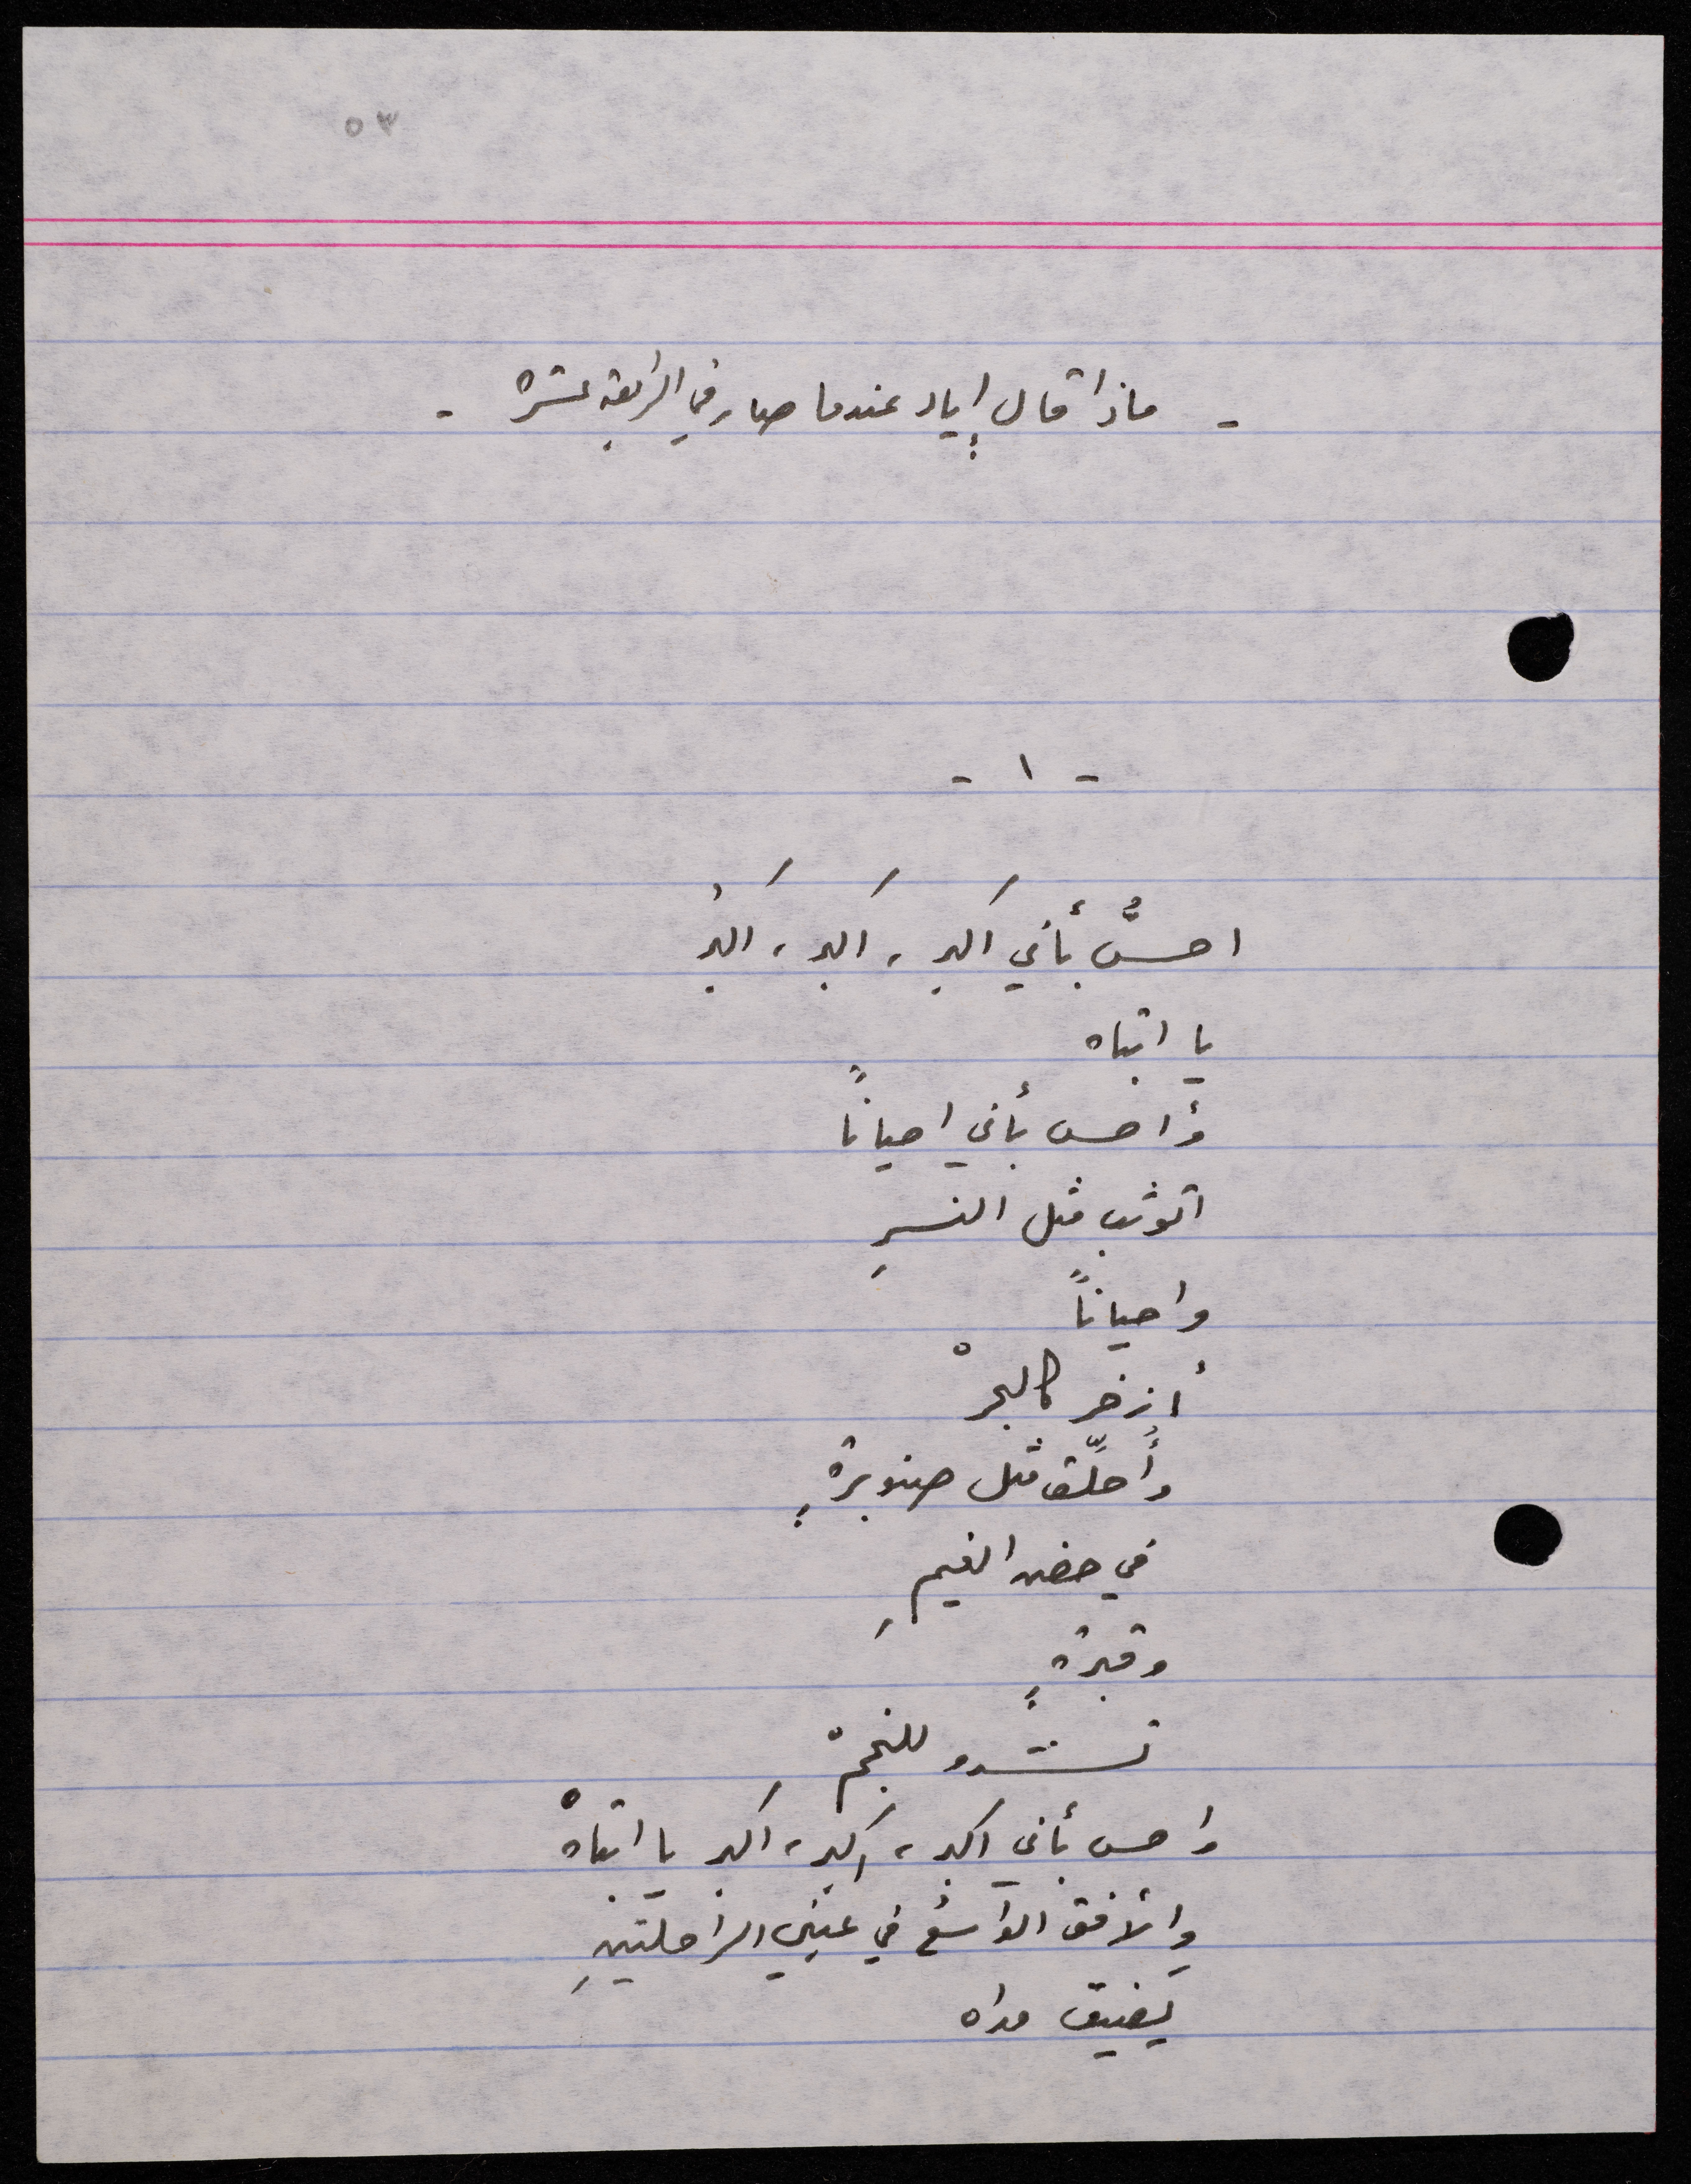 ٥٣
- ماذا قال إياد عندما صار في الرابعة عشرة -
- ١ -
احسُّ بأني اكبر ، اكبر ، اكبرُ
يا ابتاه
وأحس بأني احياناً
اتوثب مثل النسرِ
واحياناً
أزخر كالبحرْ
وأُحلّق مثل صنوبرةٍ
في حضن الغيمِ
وقبرةٍ
تشدو للنجمْ
واحس بأني اكبر ، اكبر ، اكبر يا ابتاهْ
والأفق الواسع في عينيِ الراحلتينِ
يضيق مداه